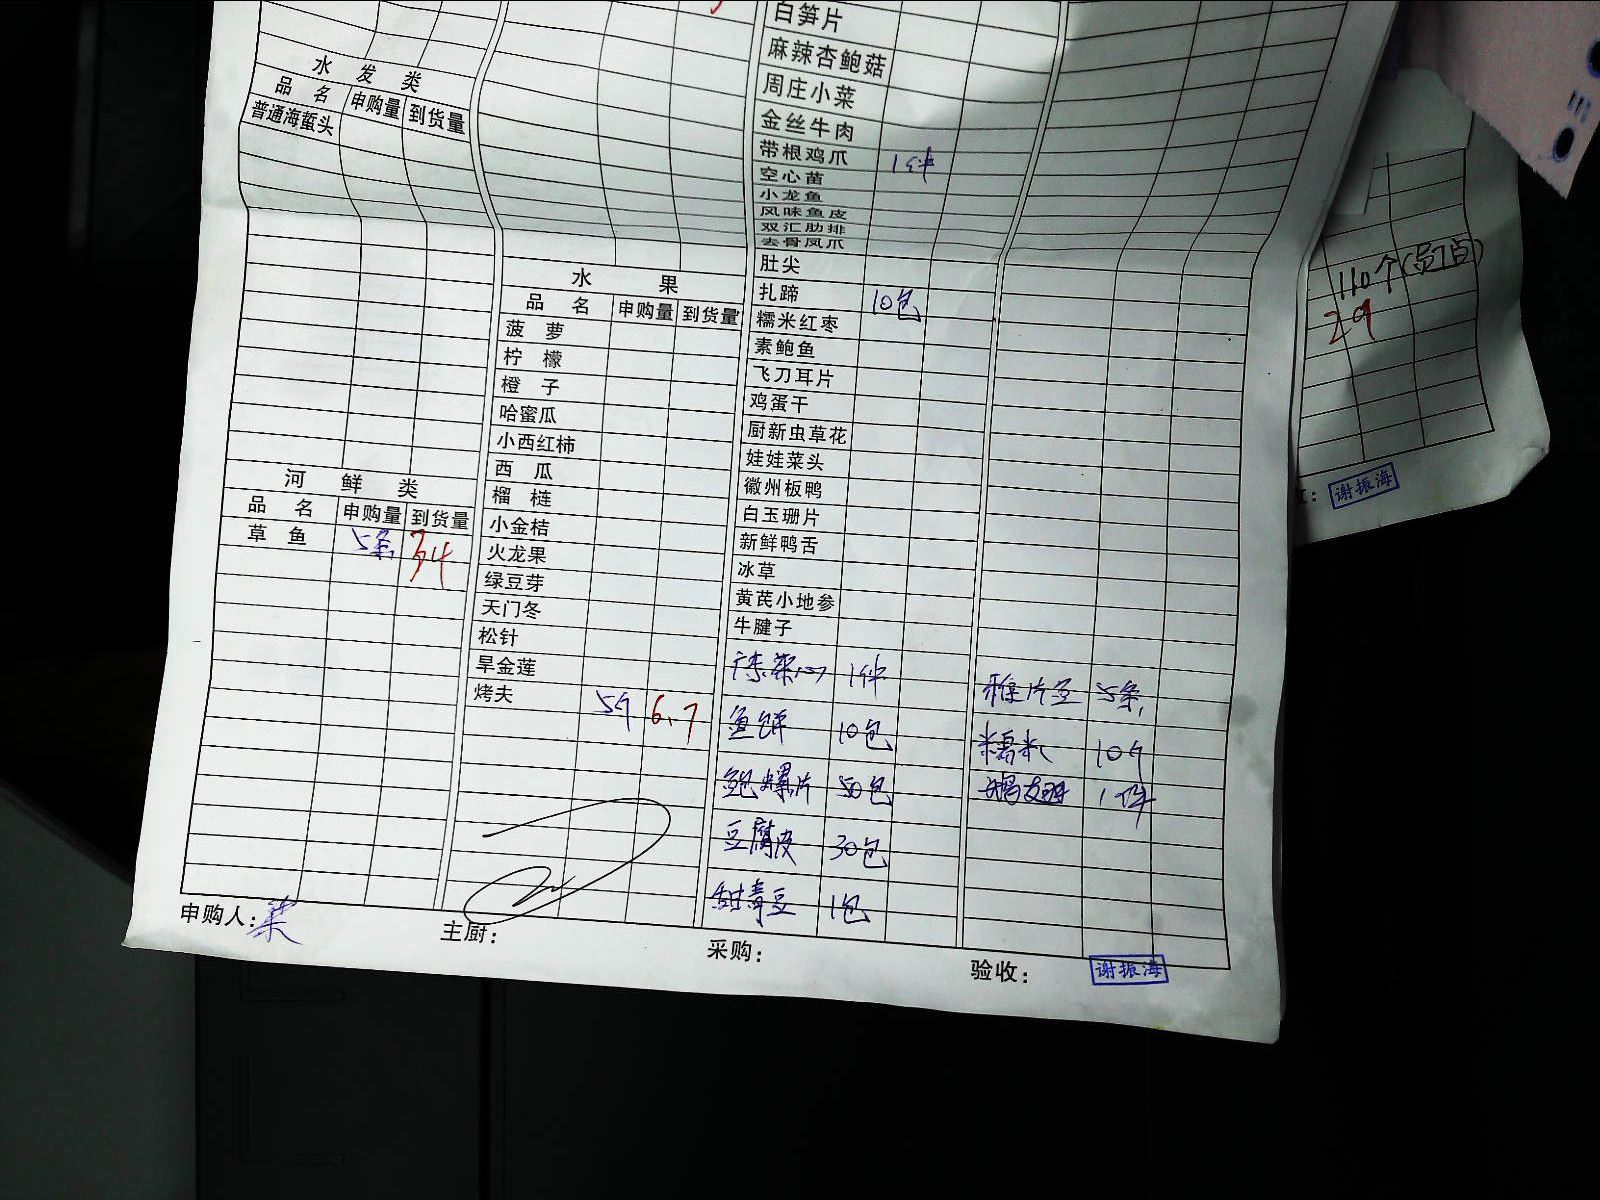 水 发 类
品 名 申购量 到货量
普通海蜇头
河 鲜 类
品 名 申购量 到货量
草 鱼 5条 34
水 果
品 名 申购量 到货量
菠 萝
柠 檬
橙 子
哈蜜瓜
小西红柿
西 瓜
榴 梿
小金桔
火龙果
绿豆芽
天门冬
松针
旱金莲
烤夫 5斤 6.7
白笋片
麻辣杏鲍菇
周庄小菜
金丝牛肉
带根鸡爪 1件
空心苗
小龙鱼
风味鱼皮
双汇肋排
去骨凤爪
肚尖
扎蹄 10包
糯米红枣
素鲍鱼
飞刀耳片
鸡蛋干
厨新虫草花
娃娃菜头
徽州板鸭
白玉珊片
新鲜鸭舌
冰草
黄芪小地参
牛腱子
广东菜心 1件
鱼饼 10包
鲍螺片 50包
豆腐皮 30包
甜青豆 1包
5条
糯米 10斤
1件
申购人:
主厨:
采购:
验收: 谢振海
110个(员工点)
29
谢振海